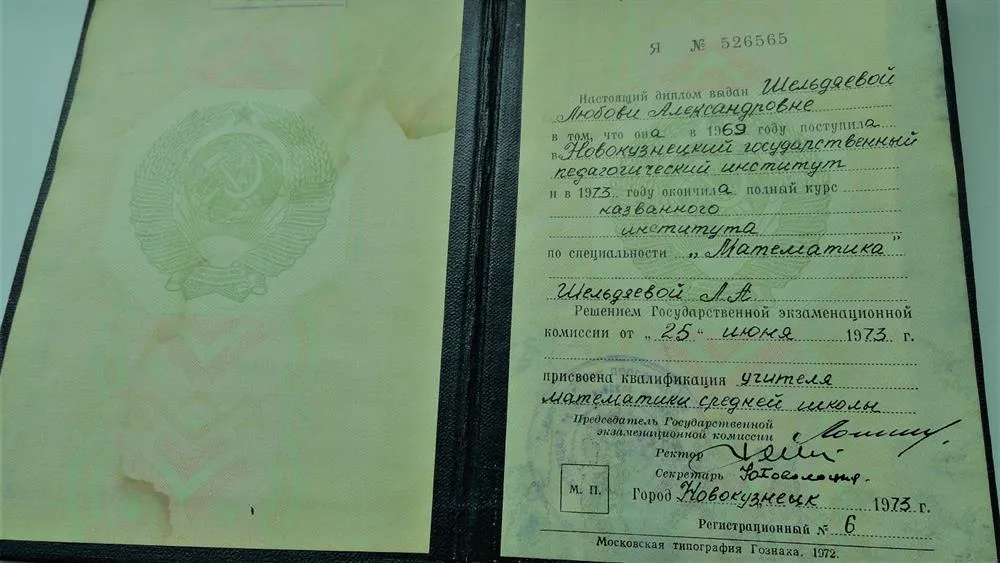 Я № 526565
Настоящий диплом выдан Шельдяевой
Любови Александровне
в том, что она в 1969 году поступила
в Новокузнецкий государственный
педагогический институт
и в 1973 году окончила полный курс
названного
института
по специальности „Математика"
Шельдяевой Л.А.
Решением Государственной экзаменационной
комиссии от „25" июня 1973 г.
присвоена квалификация учителя
математики средней школы
Председатель Государственной
экзаменационной комиссии
Ректор
Секретарь
М. П.
Город Новокузнецк 1973 г.
Регистрационный № 6
Московская типография Гознака. 1972.